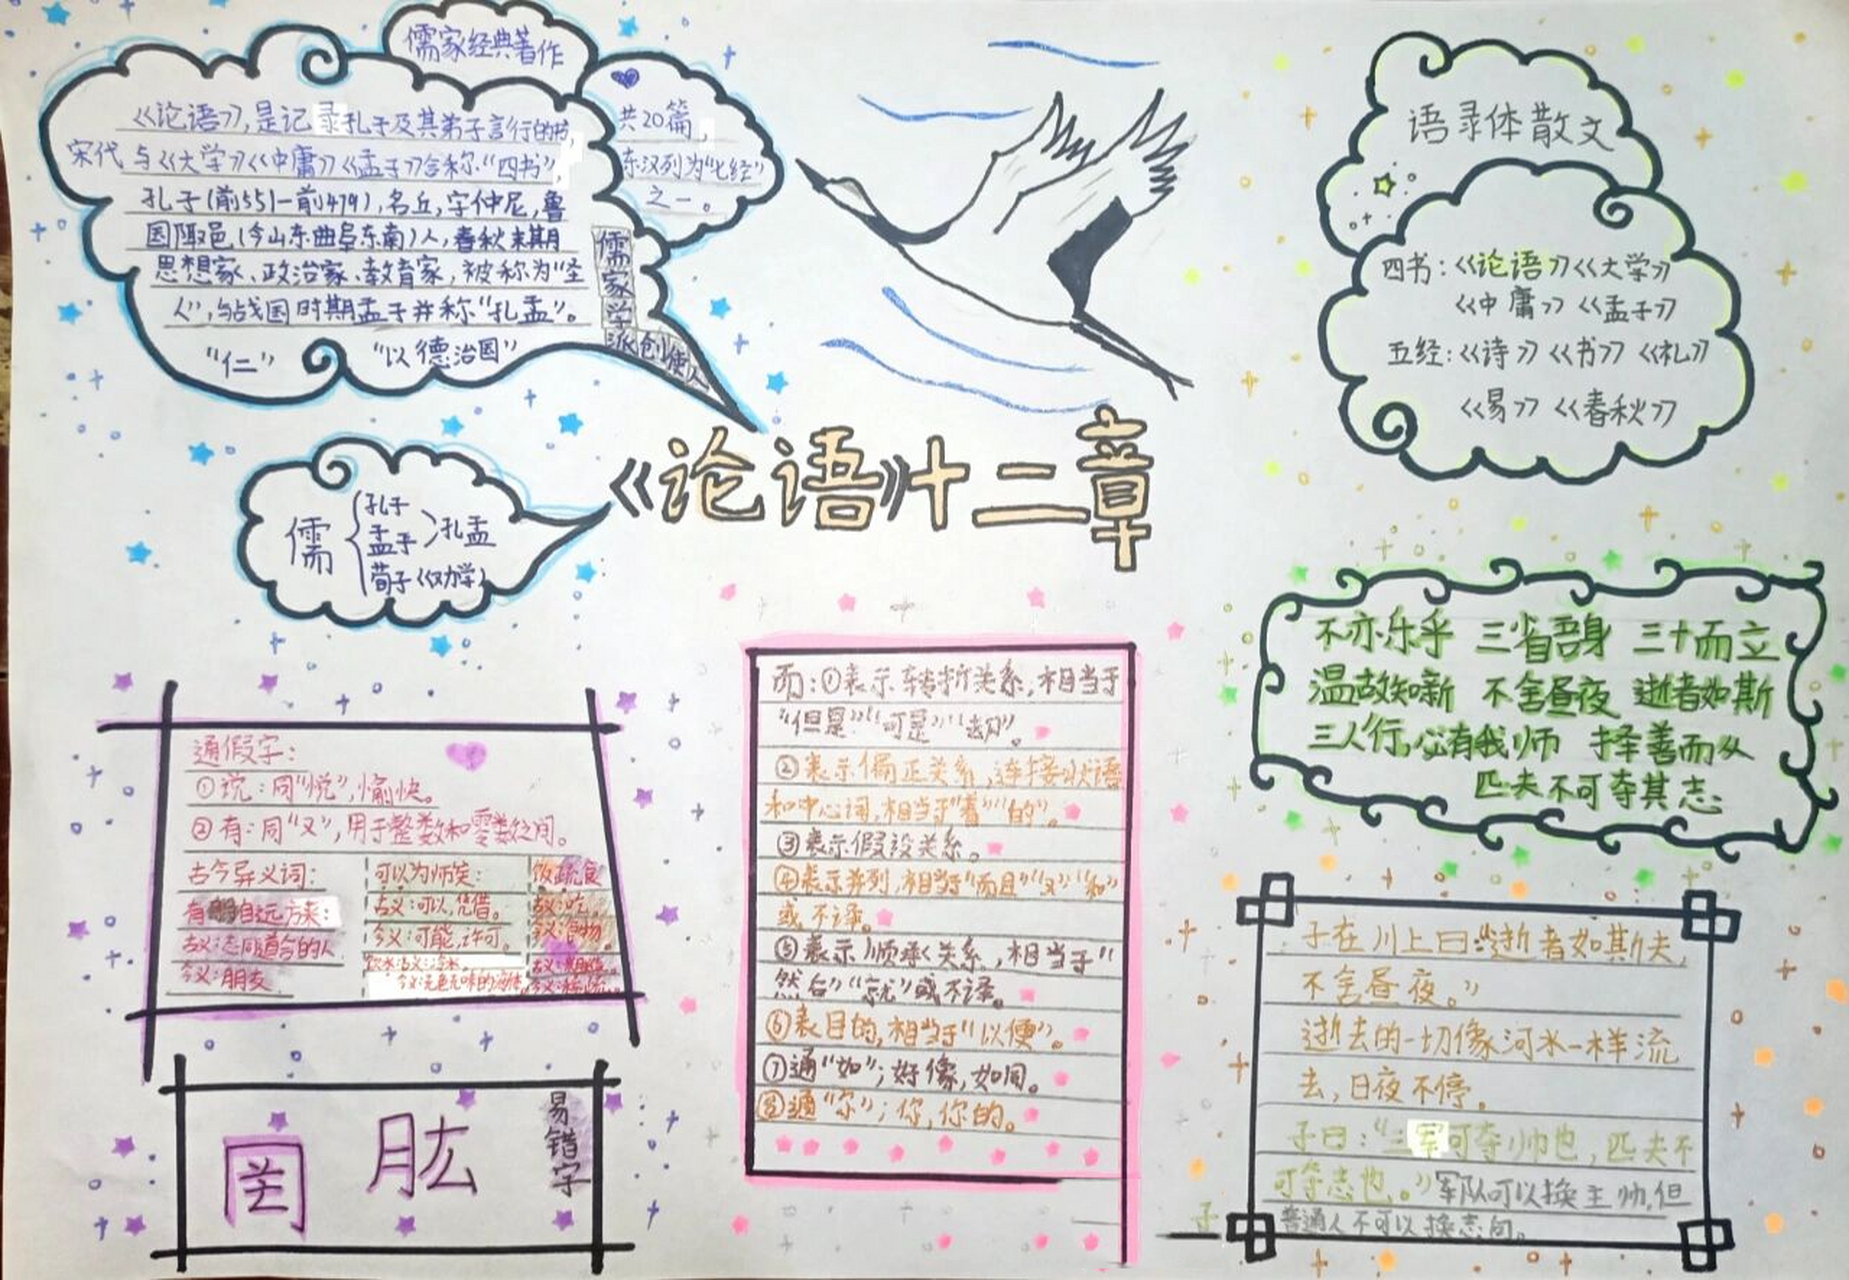 儒家经典著作
《论语》,是记录孔子及其弟子言行的书,
宋代与《大学》《中庸》《孟子》合称“四书”,
孔子(前551-前479),名丘,字仲尼,鲁
国陬邑(今山东曲阜东南)人,春秋末期
思想家、政治家、教育家,被称为“圣
人”,与战国时期孟子并称“孔孟”。
“仁”
“以德治国”
共20篇,
东汉列为“七经”
之一。
儒家学派创使人
儒
孔子
孟子
孔孟
荀子《劝学》
《论语》十二章
语录体散文
四书:《论语》《大学》
《中庸》《孟子》
五经:《诗》《书》《礼》
《易》《春秋》
不亦乐乎 三省吾身 三十而立
温故知新 不舍昼夜 逝者如斯
三人行,必有我师 择善而从
匹夫不可夺其志
通假字:
①说:同“悦”,愉快。
②有:同“又”,用于整数和零数之间。
古今异义词:
有朋自远方来:
古义:志同道合的人
今义:朋友
可以为师矣:
古义:可以,凭借。
今义:可能,许可。
饮水:古义:冷水
今义:无色无味的液体。
饭疏食
古义:吃。
今义:食物。
易错字
肱
而:①表示转折关系,相当于
“但是”“可是”“却”。
②表示偏正关系,连接状语
和中心词,相当于“着”“的”。
③表示假设关系。
④表示并列,相当于“而且”“又”“和”
或不译。
⑤表示顺承关系,相当于“
然后”“就”或不译。
⑥表目的,相当于“以便”。
⑦通“如”;好像,如同。
⑧通“尔”;你,你的。
子在川上曰:“逝者如斯夫,
不舍昼夜。”
逝去的一切像河水一样流
去,日夜不停。
子曰:“三军可夺帅也,匹夫不
可夺志也。”军队可以换主帅,但
普通人不可以换志向。
子